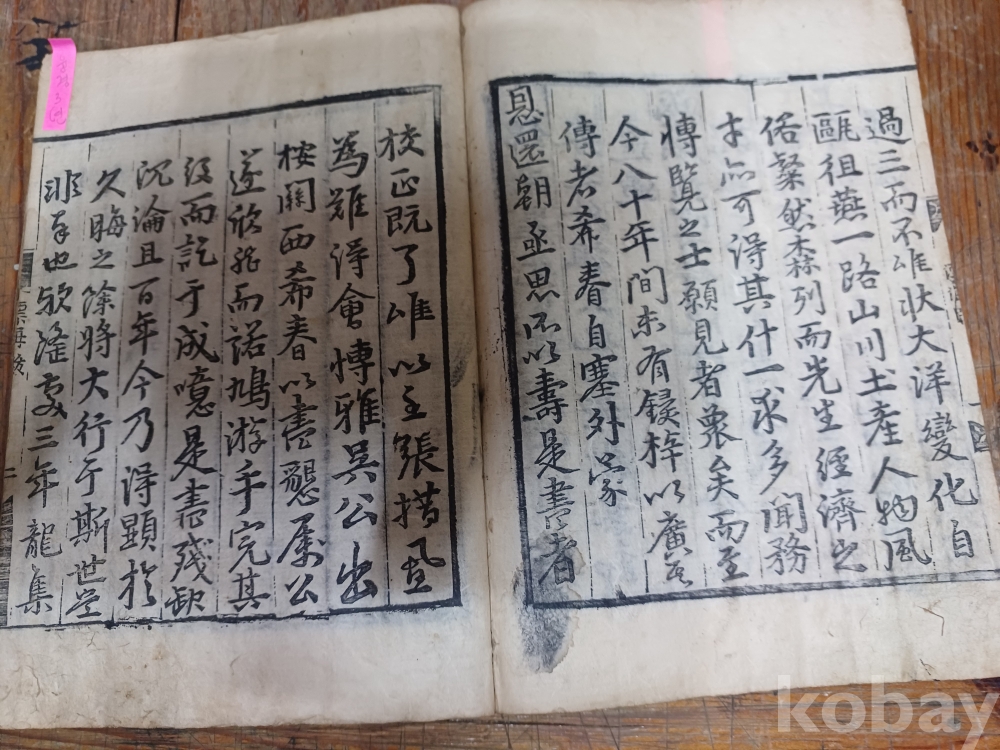 過三而不唯狀大洋變化自
甌徂燕一路山川土產人物風
俗粲然森列而先生經濟之
才亦可得其什一求多聞務
博覽之士願見者衆矣而至
今八十年間未有鋟梓以廣其
傳者希春自塞外蒙
恩還朝亟思所以壽是書者
校正既了唯以主張措置
爲難得會博雅吳公出
按關西希春以書懇屬公
遂欣然而諾鳩游手完其
役而訖于成噫是書殘缺
沉淪且百年今乃得顯於
久晦之餘將大行于斯世豈
非幸也歟隆慶三年龍集
漂海後
kobay